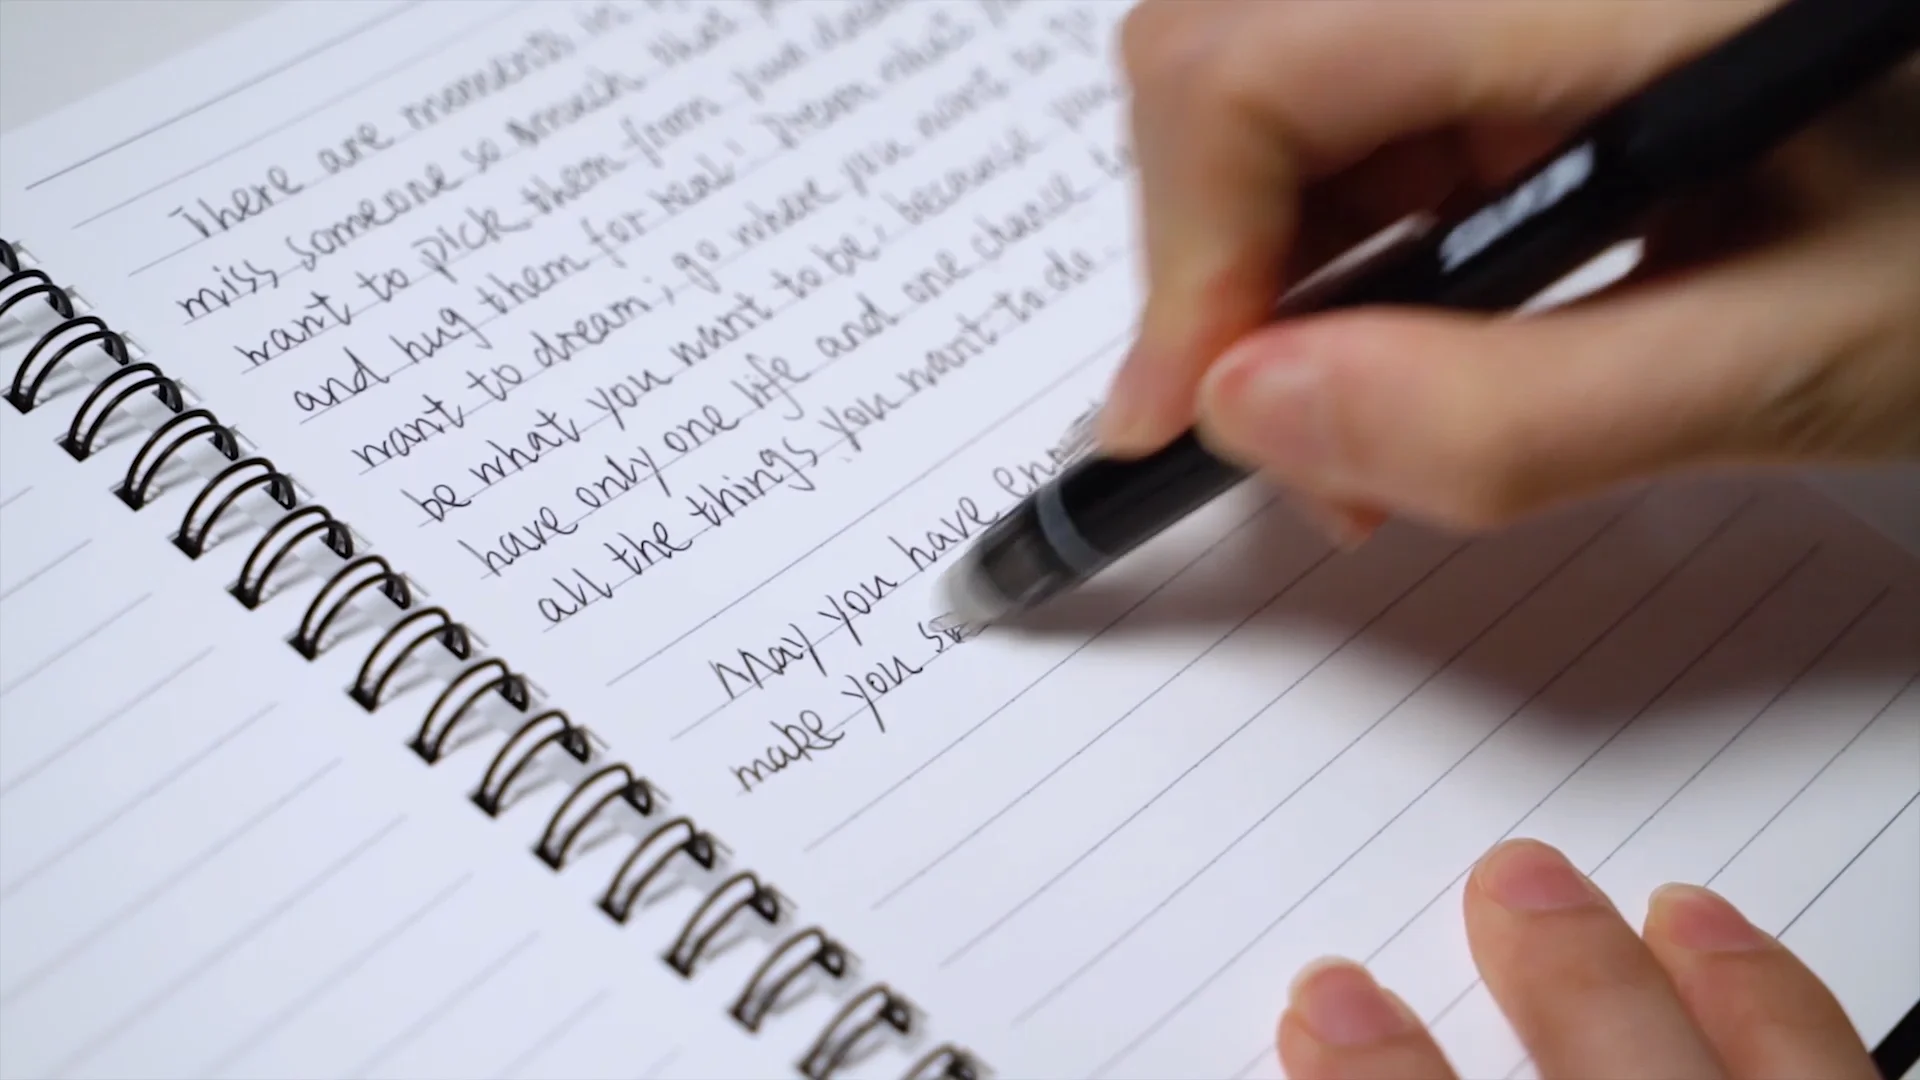 There are moments in
miss someone so much that
want to pick them from your
and hug them for real! Dream what
want to dream; go where you want to go
be what you want to be, because you
have only one life and one chance
all the things you want to do.
May you have
make you